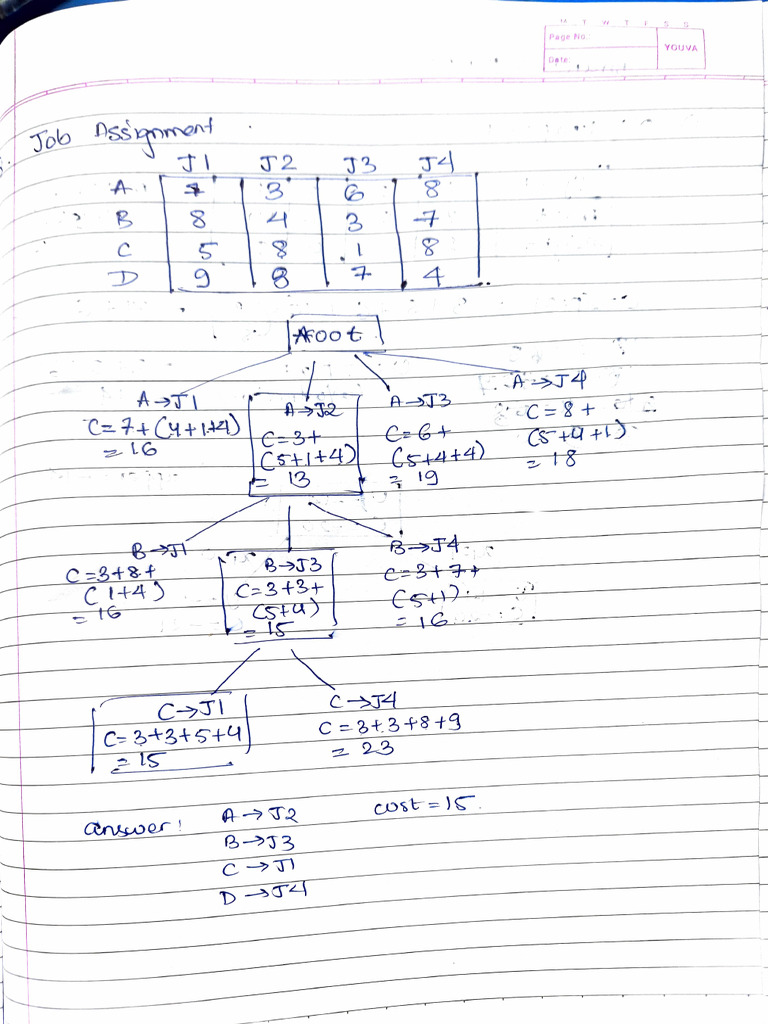 M T W T F S S
Page No.:
YOUVA
Date:
Job Assignment
J1 J2 J3 J4
A 7 3 6 8
B 8 4 3 7
C 5 8 1 8
D 9 8 7 4
root
A→J1
C=7+(4+1+4)
=16
A→J2
C=3+
(5+1+4)
= 13
A→J3
C=6+
(5+4+4)
= 19
A→J4
C=8+
(5+4+1)
=18
B→J1
C=3+8+
(1+4)
=16
B→J3
C=3+3+
(5+4)
=15
B→J4
C=3+7+
(5+1)
=16
C→J1
C=3+3+5+4
=15
C→J4
C=3+3+8+9
=23
answer: A→J2 cost=15.
B→J3
C→J1
D→J4